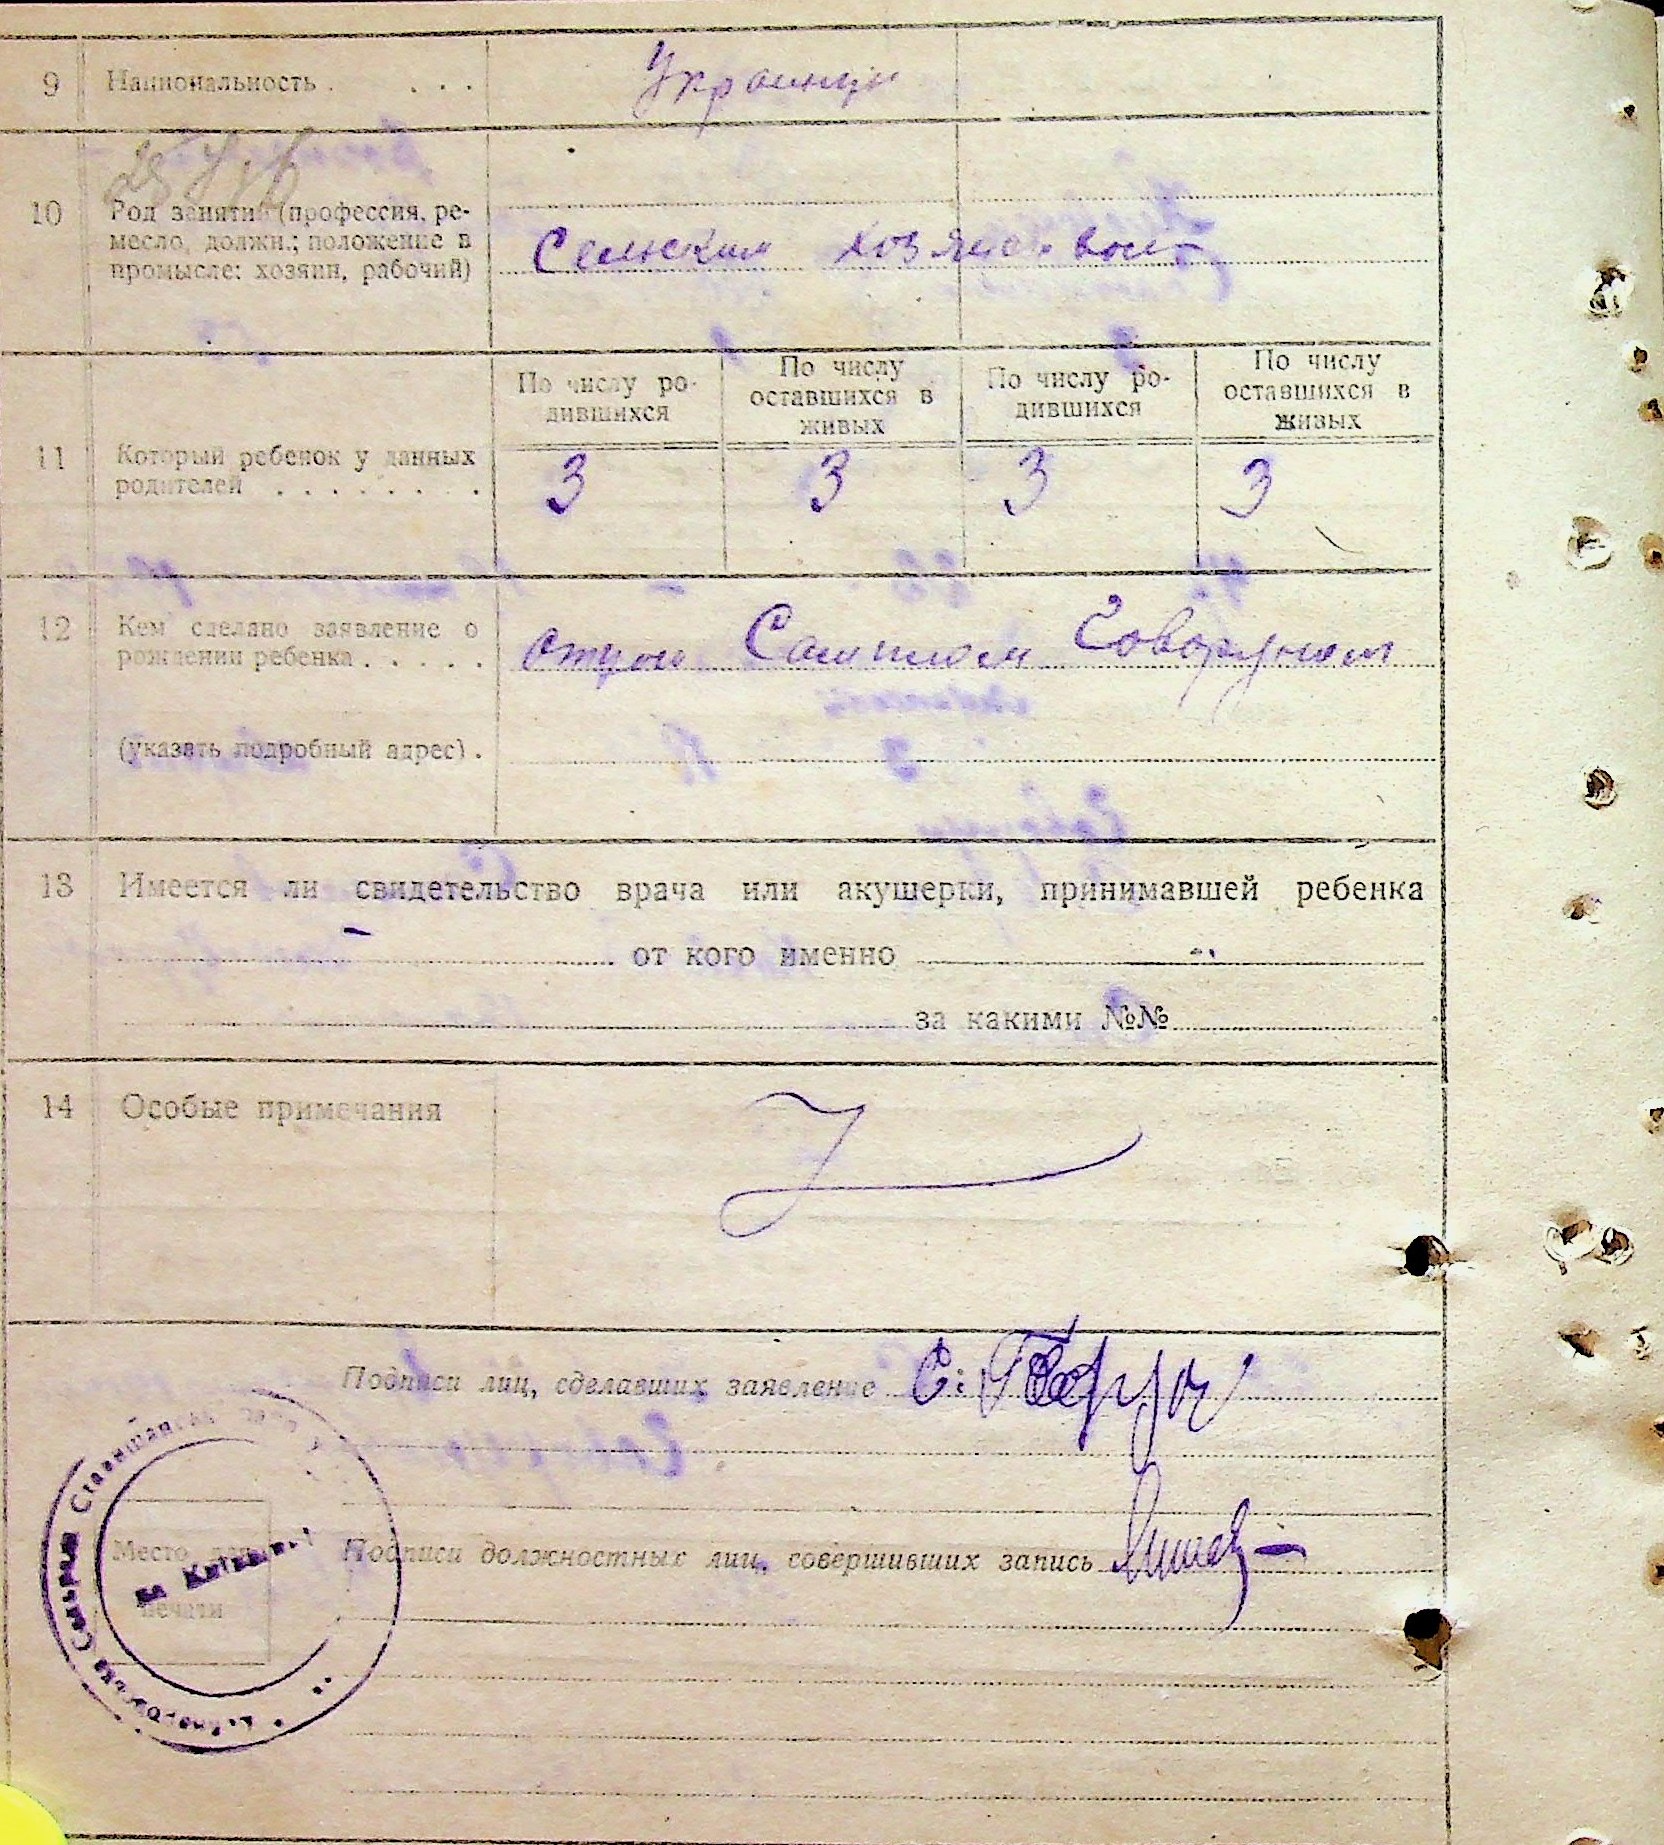 9 Национальность . . . . Украинцы
10 Род занятий (профессия, ре-
месло, должн.; положение в
промысле: хозяин, рабочий)
Сельским хозяйством
11 Который ребенок у данных
родителей . . . . . . . .
По числу ро-
дившихся
По числу
оставшихся в
живых
По числу ро-
дившихся
По числу
оставшихся в
живых
3 3 3 3
12 Кем сделано заявление о
рождении ребенка . . . . .
отцом Говоруном
(указать подробный адрес) .
13 Имеется ли свидетельство врача или акушерки, принимавшей ребенка
— от кого именно
за какими №№
14 Особые примечания
Подписи лиц, сделавших заявление С. Говорун
Место для
печати
Подписи должностных лиц, совершивших запись